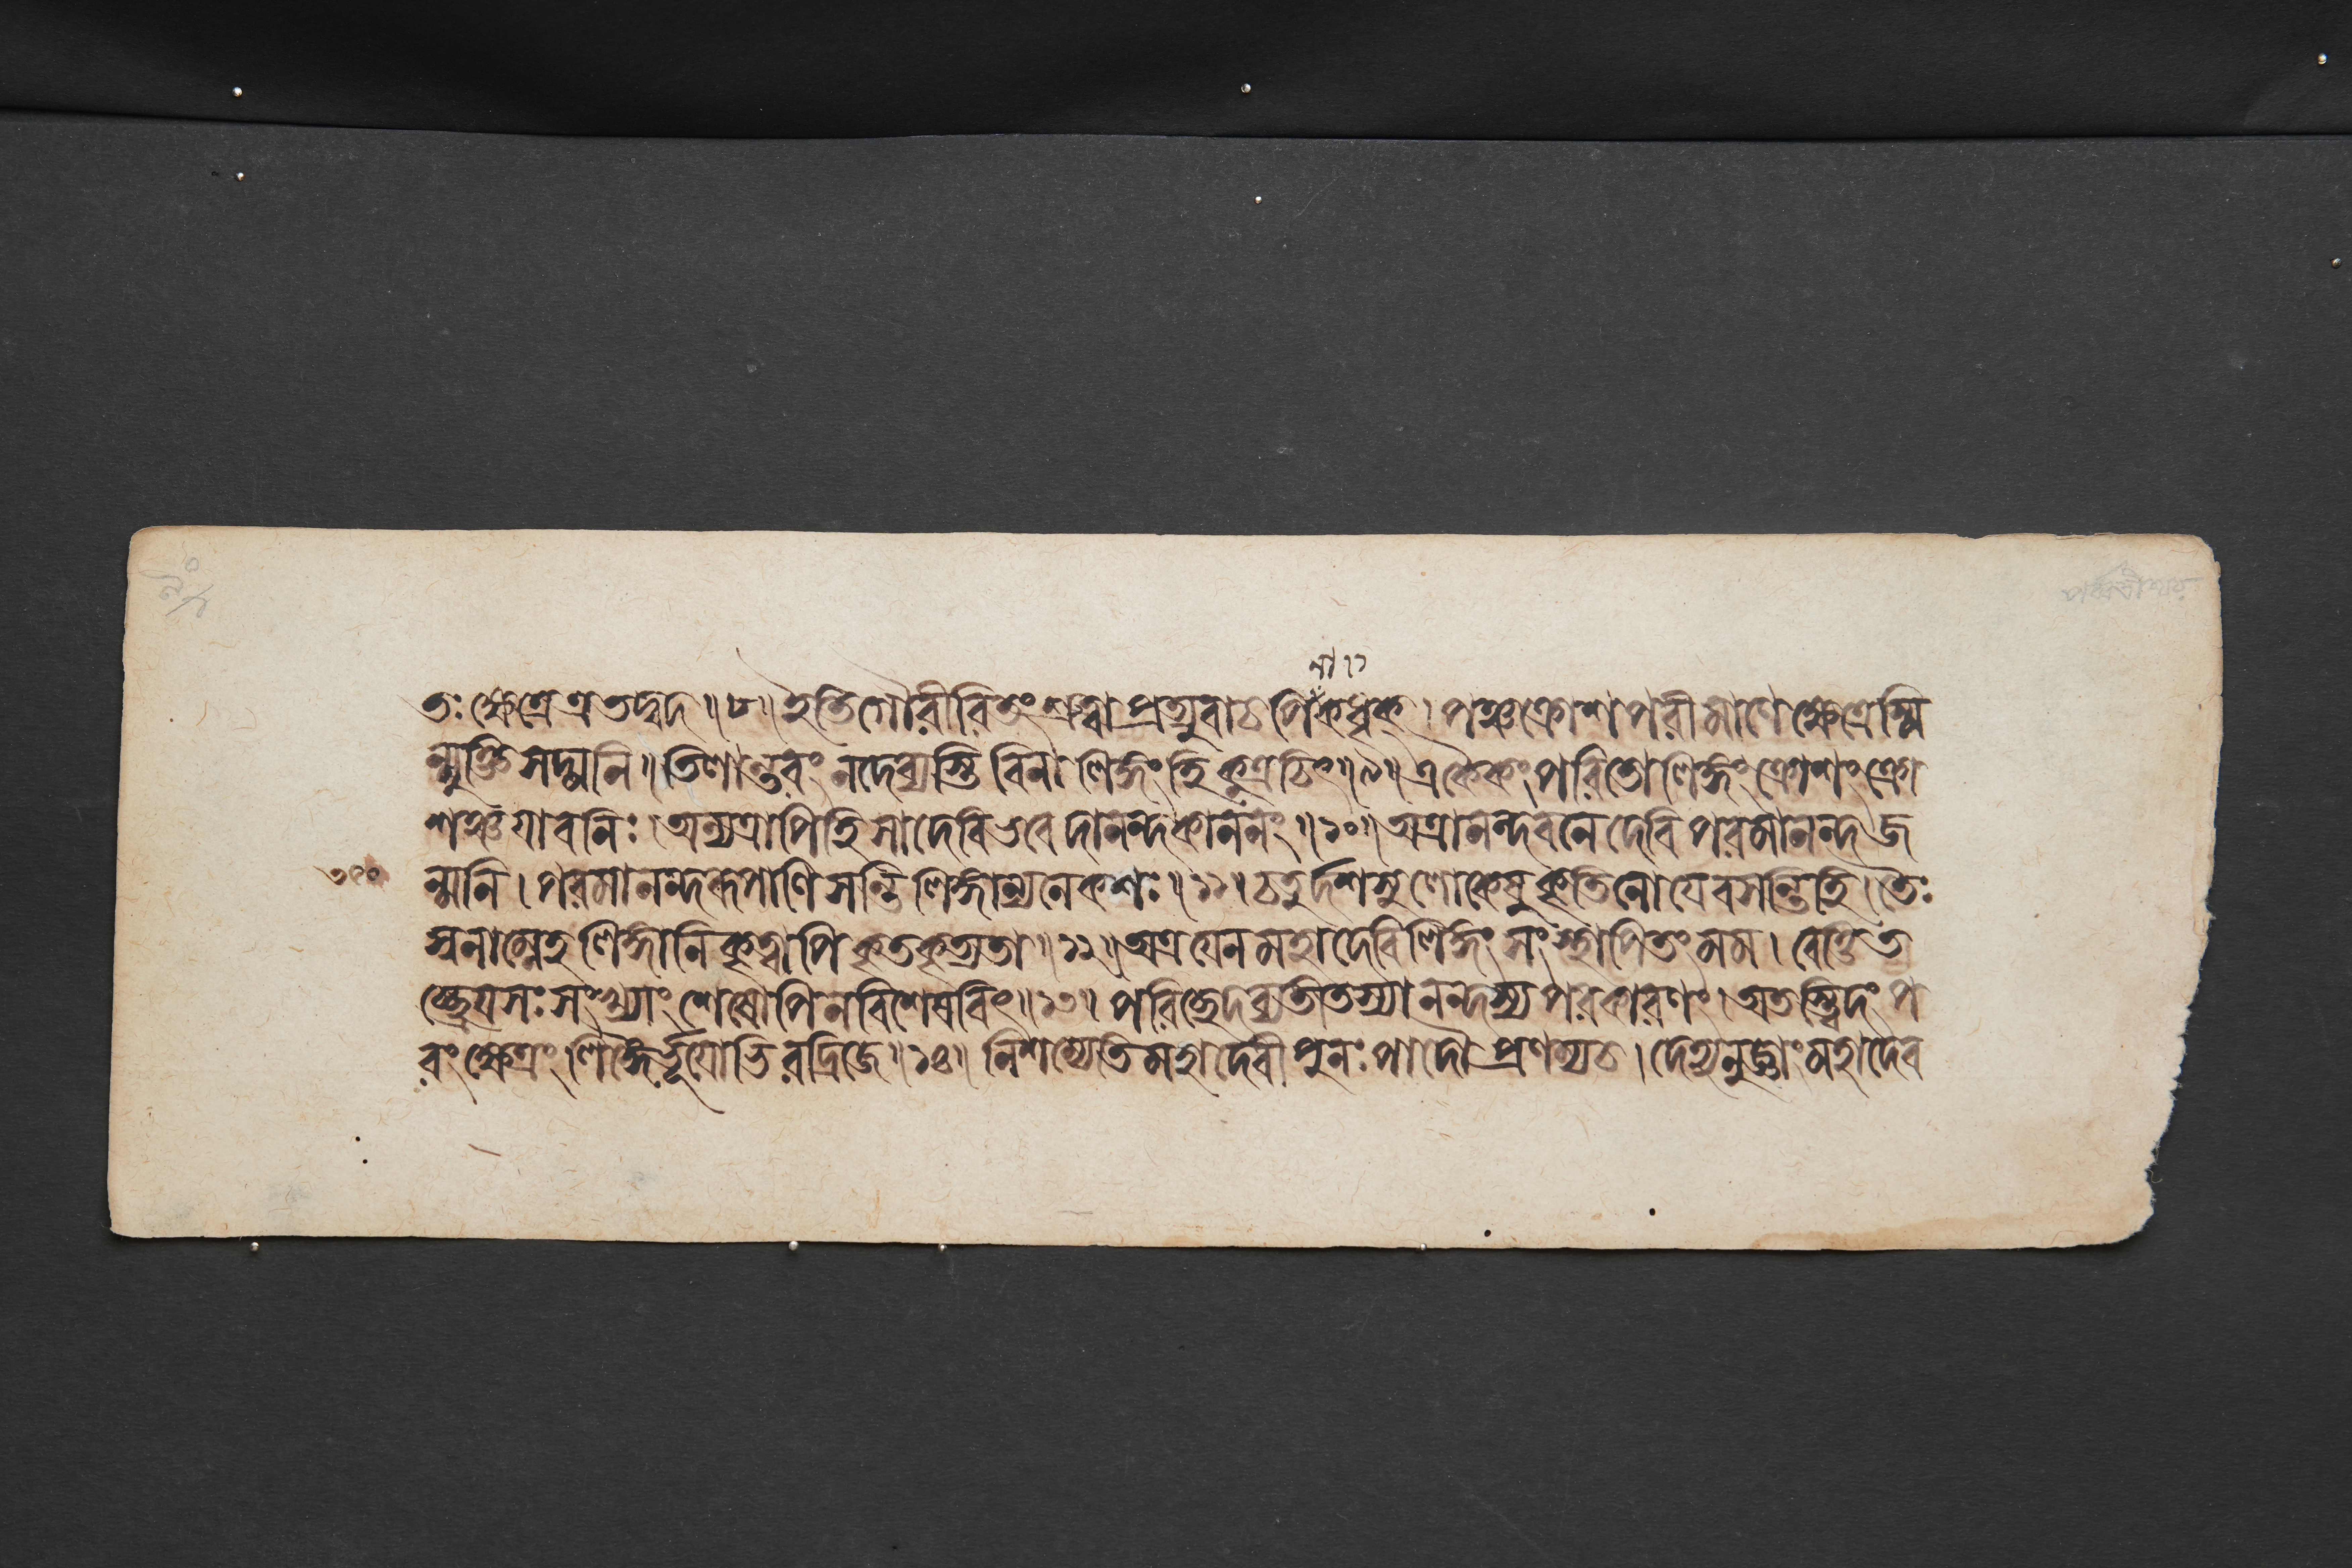 না ১
তঃ ক্ষেত্রে এতদ্বদ॥৮॥ ইতি গৌরীরিতং শ্রুত্বা প্রত্যুবাচ পিকধৃক্। পঞ্চক্রোশপরীমাণে ক্ষেত্রেস্মি
ন্মুক্তিসদ্মনি॥ তিলান্তরং নদেব্যস্তি বিনা লিঙ্গং হি কুত্রচিৎ॥৯॥ একৈকং পরিতো লিঙ্গং ক্রোশং ক্রো
শঞ্চ যাবনিঃ। অন্যত্রাপি হি সা দেবি ভবেদানন্দকাননং॥১০॥ অত্রানন্দবনে দেবি পরমানন্দজ
ন্মনি। পরমানন্দরূপাণি সন্তি লিঙ্গান্যনেকশঃ॥১১। চতুর্দশসু লোকেষু কৃতিনো যে বসন্তি হি। তৈঃ
স্বনাম্নেহ লিঙ্গানি কৃত্বাপি কৃতকৃত্যতা॥১২॥ অত্র যেন মহাদেবি লিঙ্গং সংস্থাপিতং মম। বেত্তি ত
চ্ছ্রেয়সঃ সংখ্যাং শেষোপি ন বিশেষবিৎ॥১৩॥ পরিচ্ছেদব্যতীতস্যানন্দস্য পরকারণং। অতস্ত্বিদং প
রং ক্ষেত্রং লিঙ্গৈর্ভূয়োভিরদ্রিজে॥১৪॥ নিশম্যেতি মহাদেবী পুনঃ পাদৌ প্রণম্য চ। দেহ্যনুজ্ঞাং মহাদেব